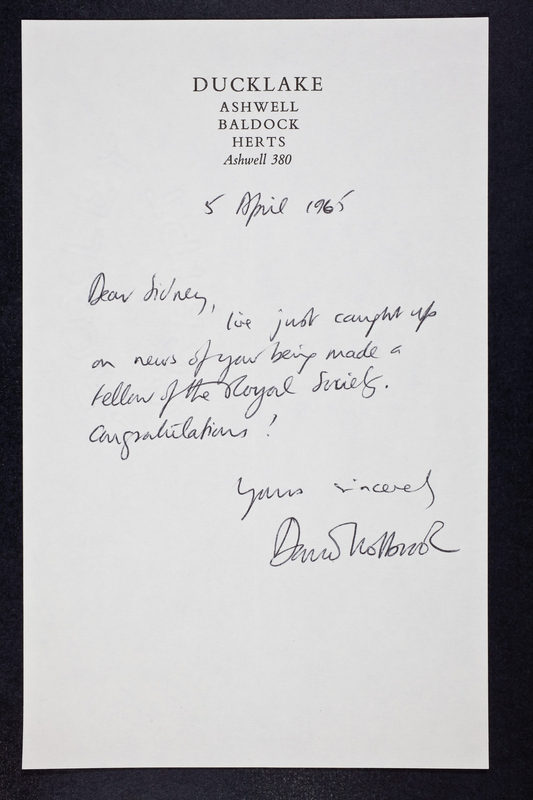 DUCKLAKE
ASHWELL
BALDOCK
HERTS
Ashwell 380
5 April 1965
Dear Sidney,
I've just caught up
on news of your being made a
Fellow of the Royal Society.
Congratulations!
Yours sincerely
David Holbrook